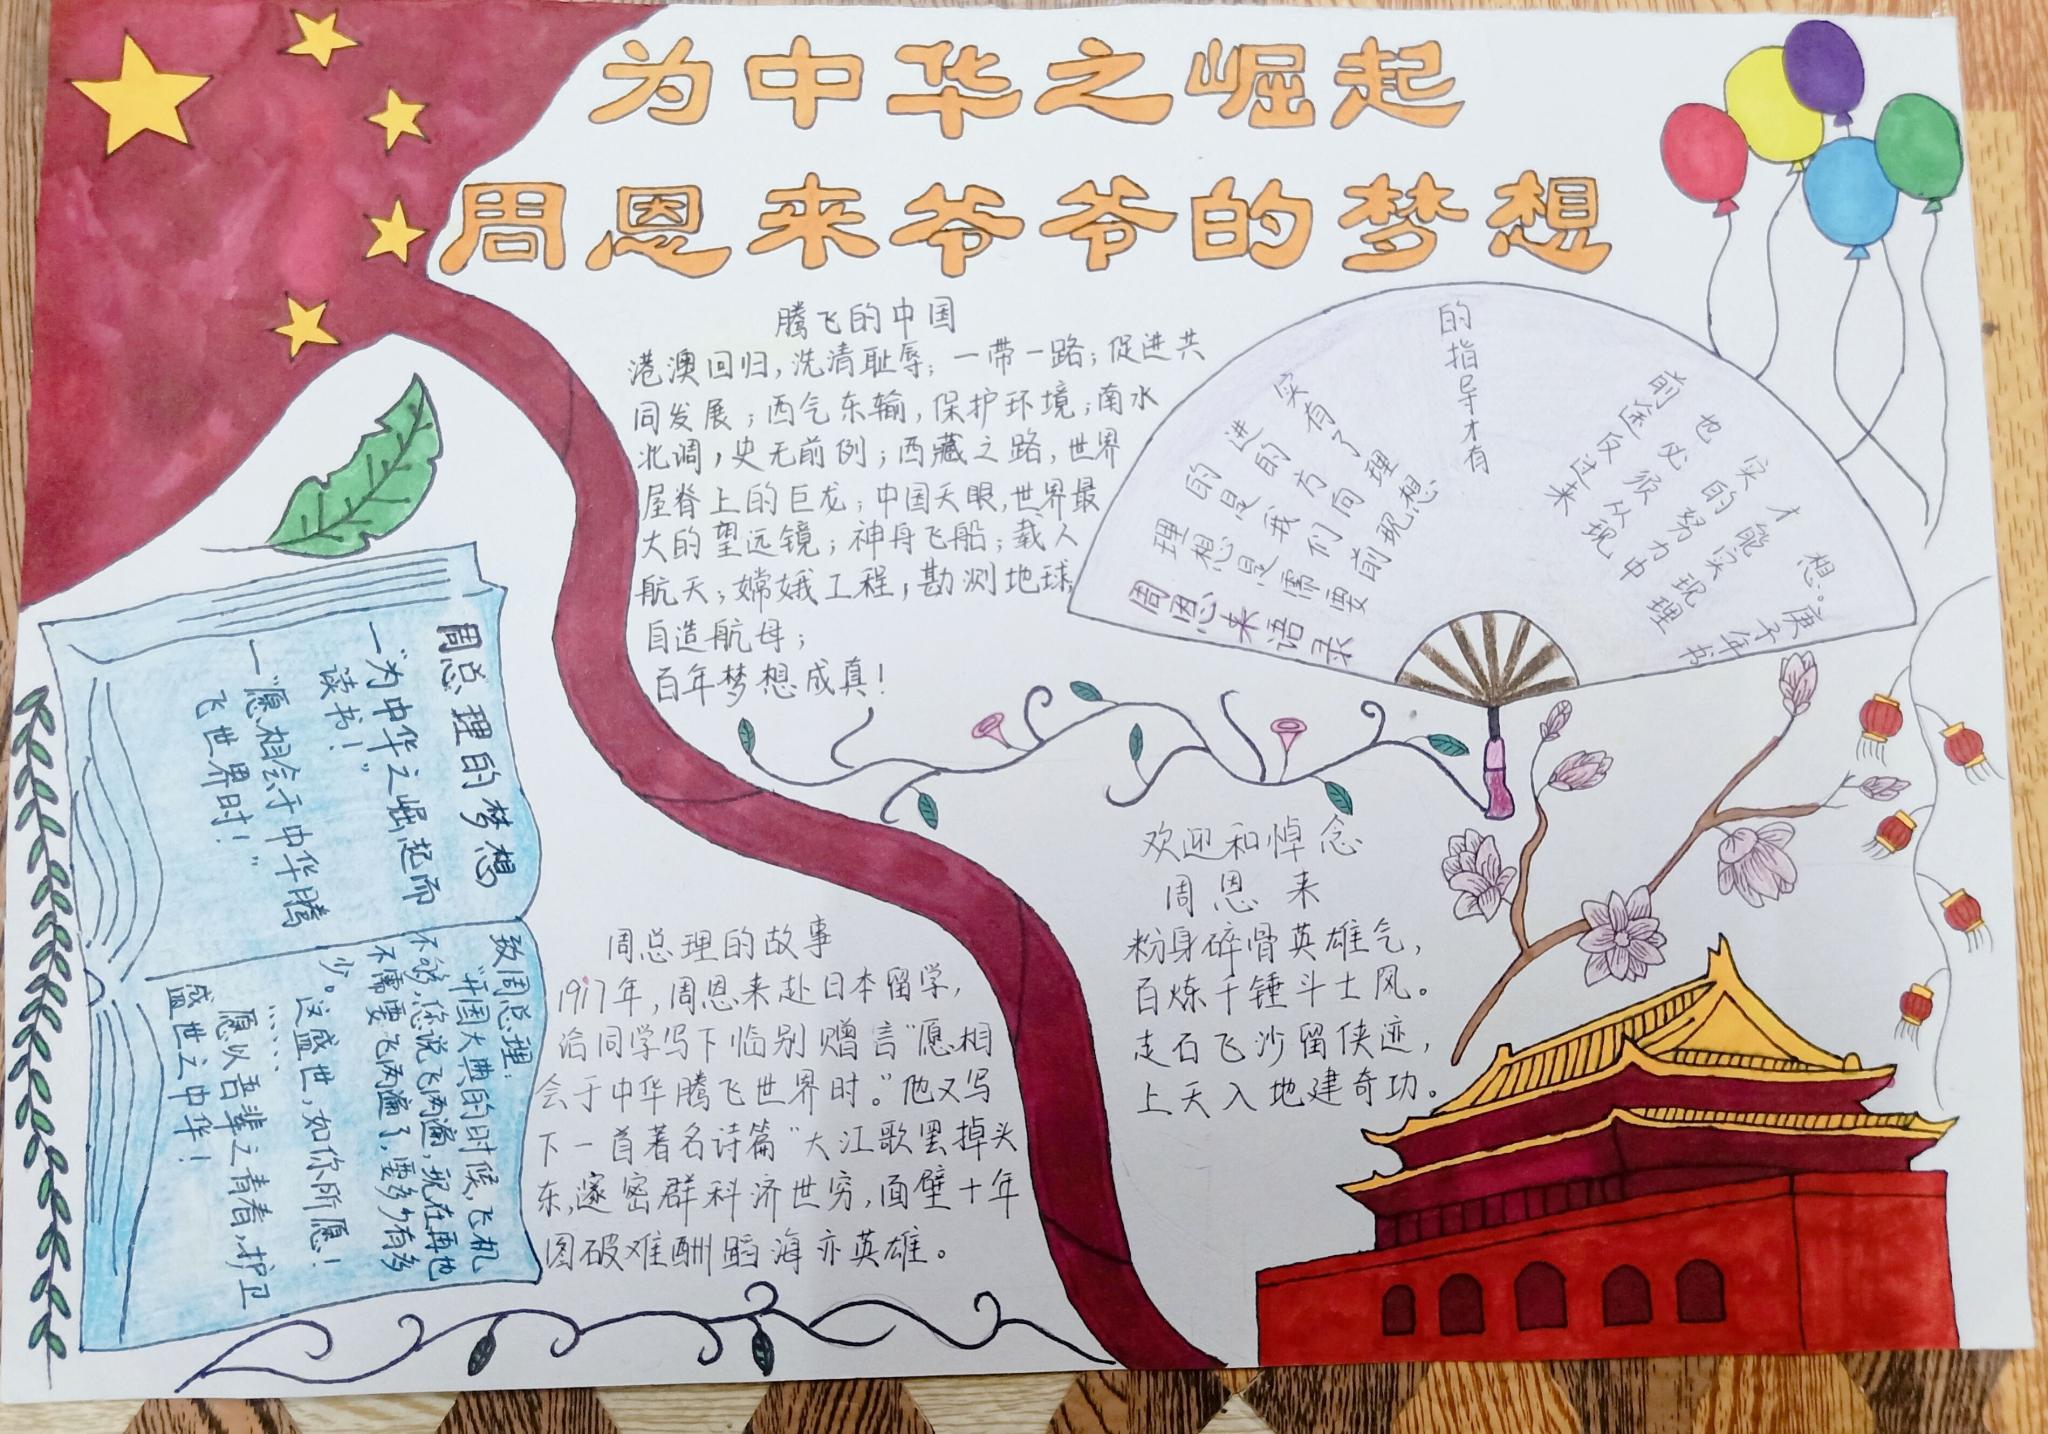 为中华之崛起
周恩来爷爷的梦想
腾飞的中国
港澳回归,洗清耻辱;一带一路;促进共
同发展;西气东输,保护环境;南水
北调,史无前例;西藏之路,世界
屋脊上的巨龙;中国天眼,世界最
大的望远镜;神舟飞船;载人
航天;嫦娥工程,勘测地球,
自造航母;
百年梦想成真!
周恩来语录
理想是需要
的是我们前
进的方向现
实有了理想
的指导才有
前途反过来
也必须从现
实的努力中
才能实现理
想。庚子年书
周总理的梦想
一“为中华之崛起而
读书!”
一“愿相会于中华腾
飞世界时!”
致周总理:
“开国大典的时候,飞机
不够,您说飞两遍,现在再也
不需要飞两遍了,要多少有多
少。这盛世,如你所愿!
……
愿以吾辈之青春,护卫
盛世之中华!
周总理的故事
1917年,周恩来赴日本留学,
给同学写下临别赠言“愿相
会于中华腾飞世界时。”他又写
下一首著名诗篇“大江歌罢掉头
东,邃密群科济世穷,面壁十年
图破难酬蹈海亦英雄。
欢迎和悼念
周恩来
粉身碎骨英雄气,
百炼千锤斗士风。
走石飞沙留侠迹,
上天入地建奇功。